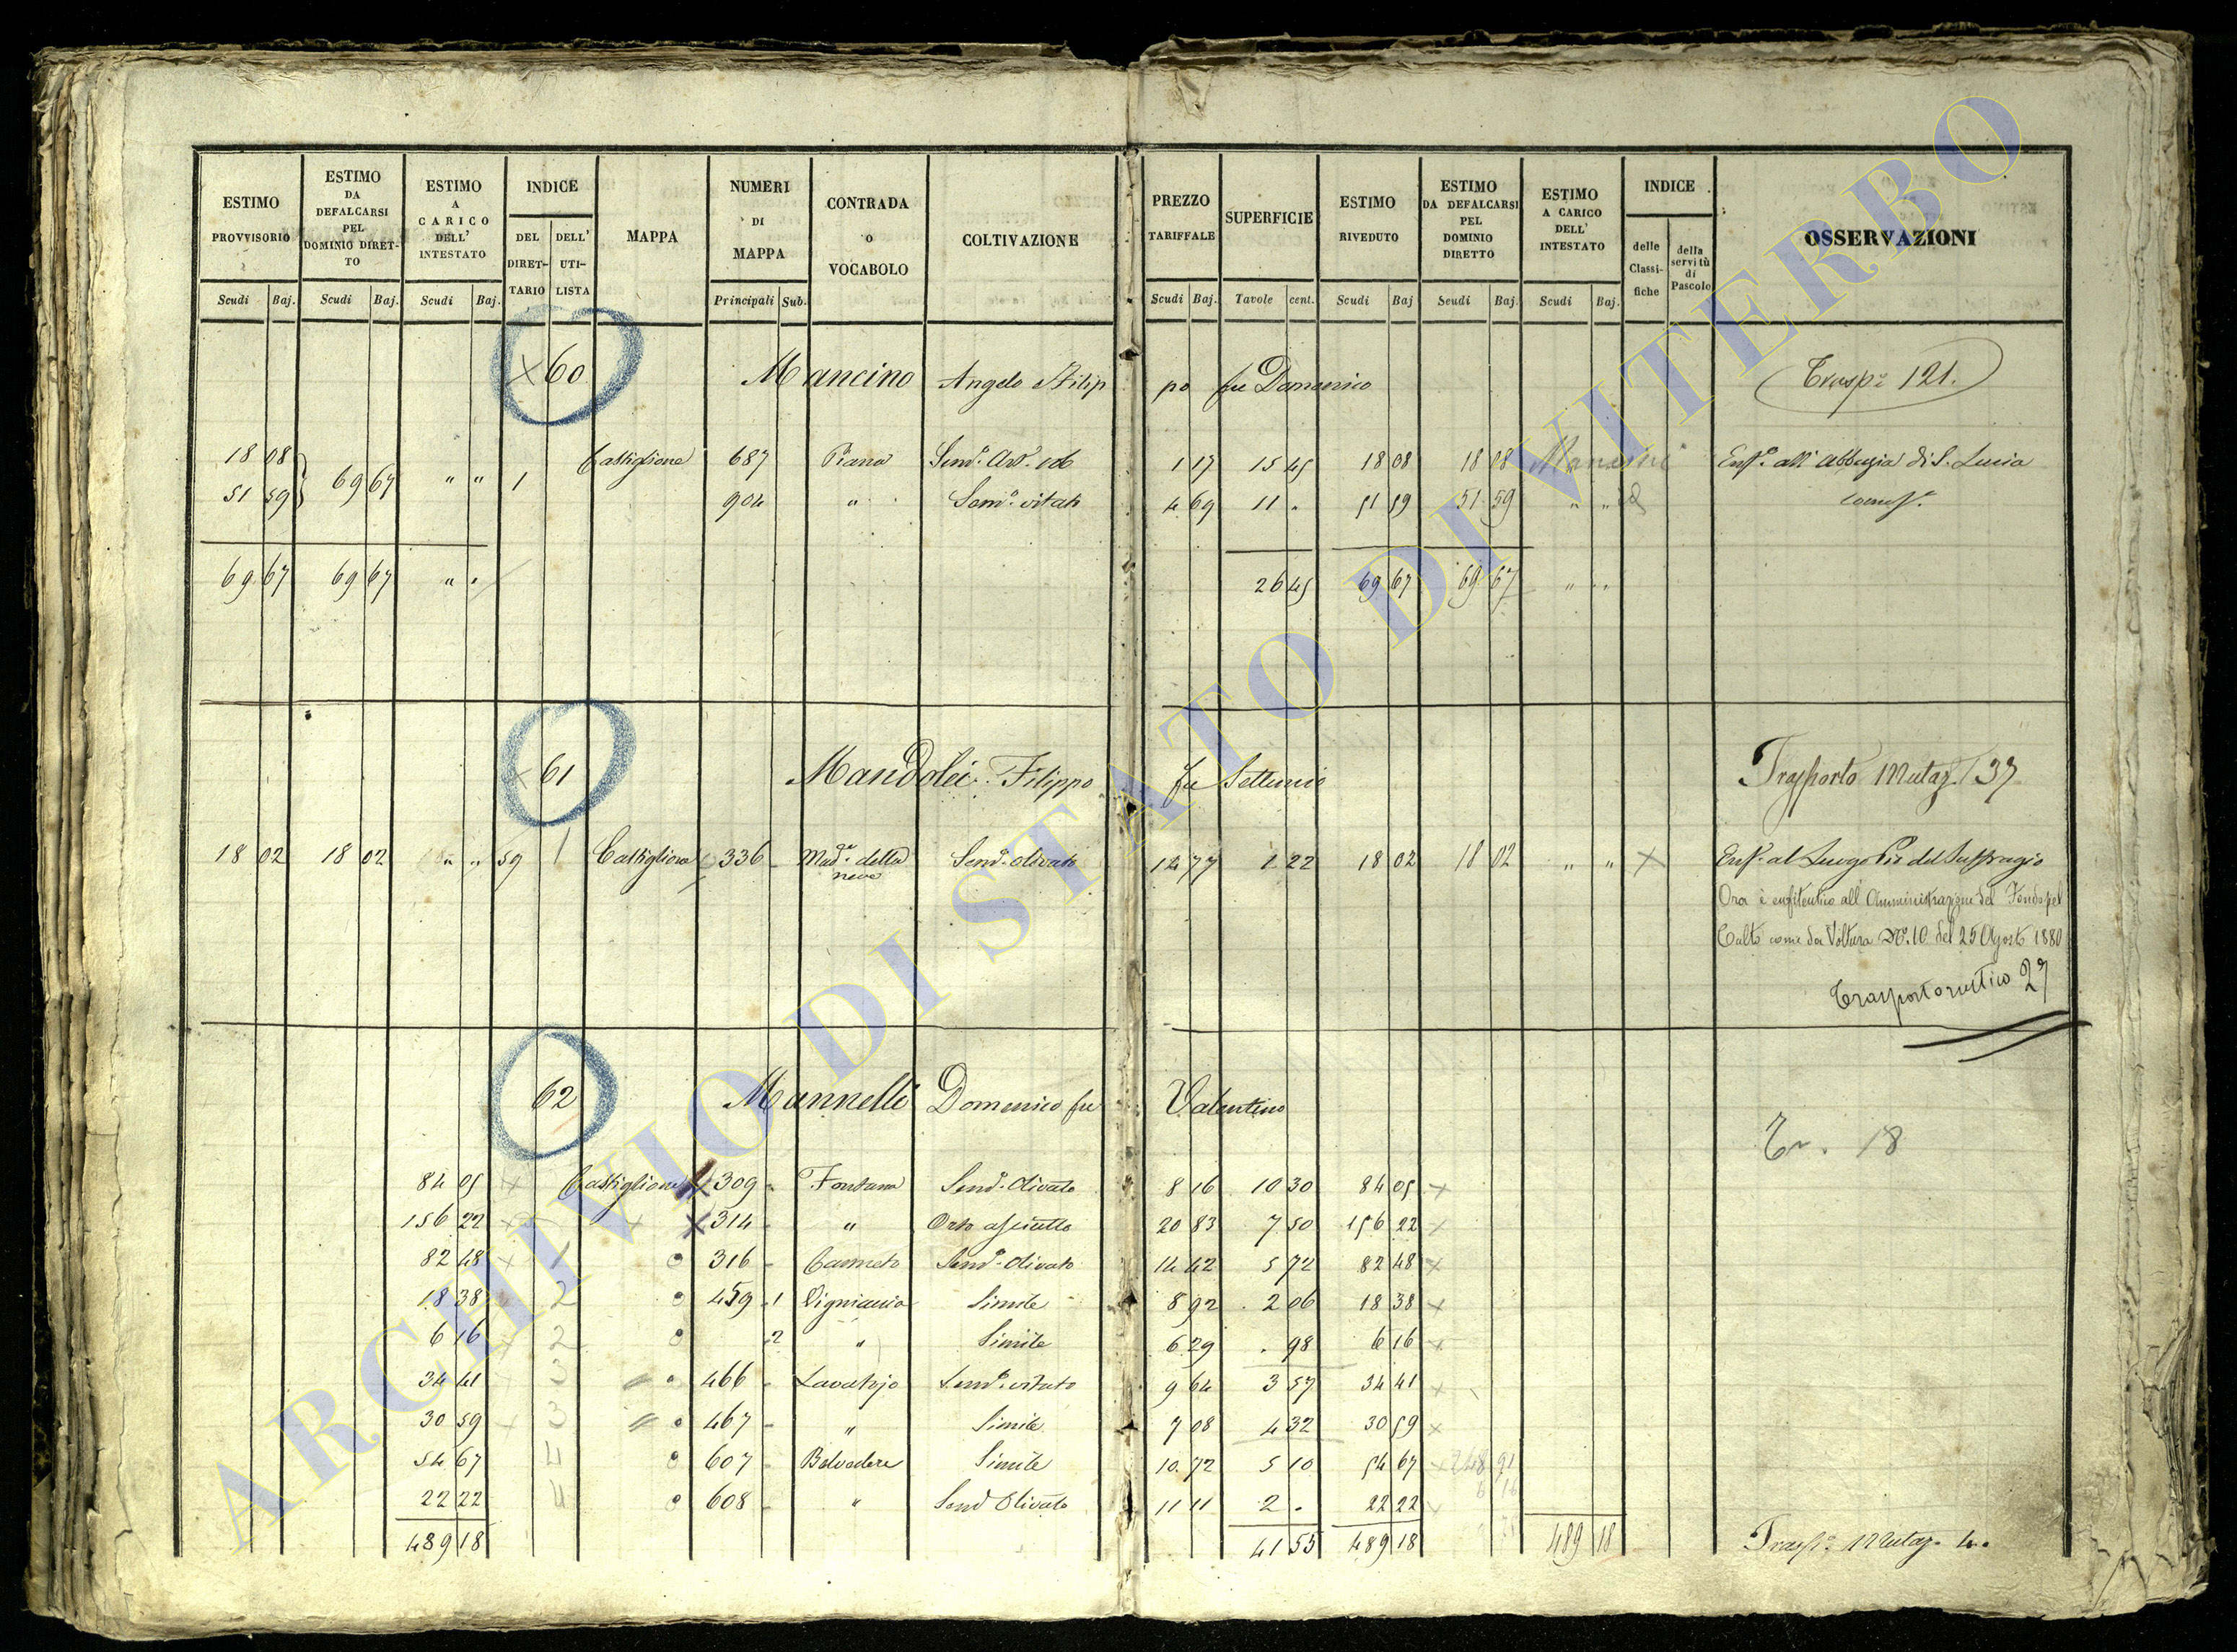 ESTIMO PROVVISORIO
ESTIMO DA DEFALCARSI PEL DOMINIO DIRET-TO
ESTIMO A CARICO DELL' INTESTATO
INDICE
DEL DIRET-TARIO
DELL' UTI-LISTA
MAPPA
NUMERI DI MAPPA
CONTRADA O VOCABOLO
COLTIVAZIONE
PREZZO TARIFFALE
SUPERFICIE
ESTIMO RIVEDUTO
ESTIMO DA DEFALCARSI PEL DOMINIO DIRETTO
ESTIMO A CARICO DELL' INTESTATO
INDICE
delle Classi-fiche
della servitù di Pascolo
OSSERVAZIONI
Scudi Baj. Scudi Baj. Scudi Baj. Principali Sub. Scudi Baj. Tavole cent. Scudi Baj Scudi Baj. Scudi Baj.
60 Mancino Angelo Filip po fu Domenico Trasp. 121.
18 08 69 67 " " 1 Castiglione 687 Piana 1 17 15 45 18 08 18 08 Enf. all' Abbazia di S. Lucia
51 59 904 " Sem.o vitato 4 69 11 . 51 59 51 59 " "
69 67 69 67 " " 26 45 69 67 69 67 " "
61 Mandolei Filippo fu Settimio Trasporto Mutaz. 37
18 02 18 02 " " 59 1 Castiglione 336 Mad.a della neve Sem.o olivato 14 77 1 22 18 02 18 02 " " X Enf. al Luogo Pio del Suffragio
Ora è enfiteutico all' Amministrazione del Fondo pel
Culto come da Voltura No. 10 del 25 Agosto 1880
Trasporto rustico 27
62 Mannelli Domenico fu Valentino
Tr. 18
84 05 Castiglione 309 Fontana Sem.o Olivato 8 16 10 30 84 05
156 22 X 314 " Orto asciutto 20 83 7 50 156 22
82 48 1 316 Canneto Sem.o Olivato 14 42 5 72 82 48
18 38 2 459 1 Simile 8 92 2 06 18 38
6 16 2 2 " Simile 6 29 . 98 6 16
34 41 3 466 Lavatojo Sem.o vitato 9 64 3 57 34 41
30 59 3 467 " Simile 7 08 4 32 30 59
54 67 4 607 Belvedere Simile 10 72 5 10 54 67 248 91
22 22 4 608 " Sem.o Olivato 11 11 2 . 22 22
489 18 41 55 489 18 489 18 Trasp.o Mutaz. 4.
ARCHIVIO DI STATO DI VITERBO